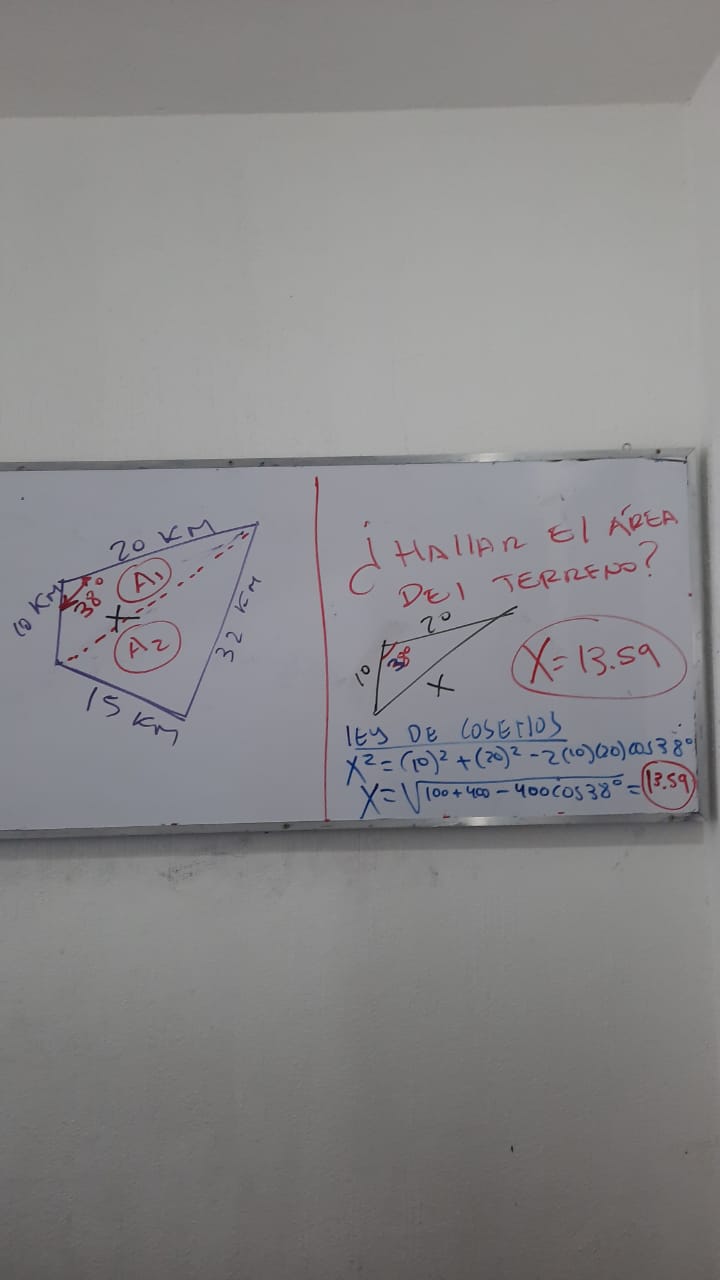 20 KM
10 KM
38°
A1
X
A2
32 KM
15 KM
¿HAllAR El ÁREA
DEl TERRENO?
20
10
38°
X
X=13.59
lEY DE COSENOS
X²=(10)²+(20)²-2(10)(20)cos38°
X=√100+400-400cos38° = 13.59